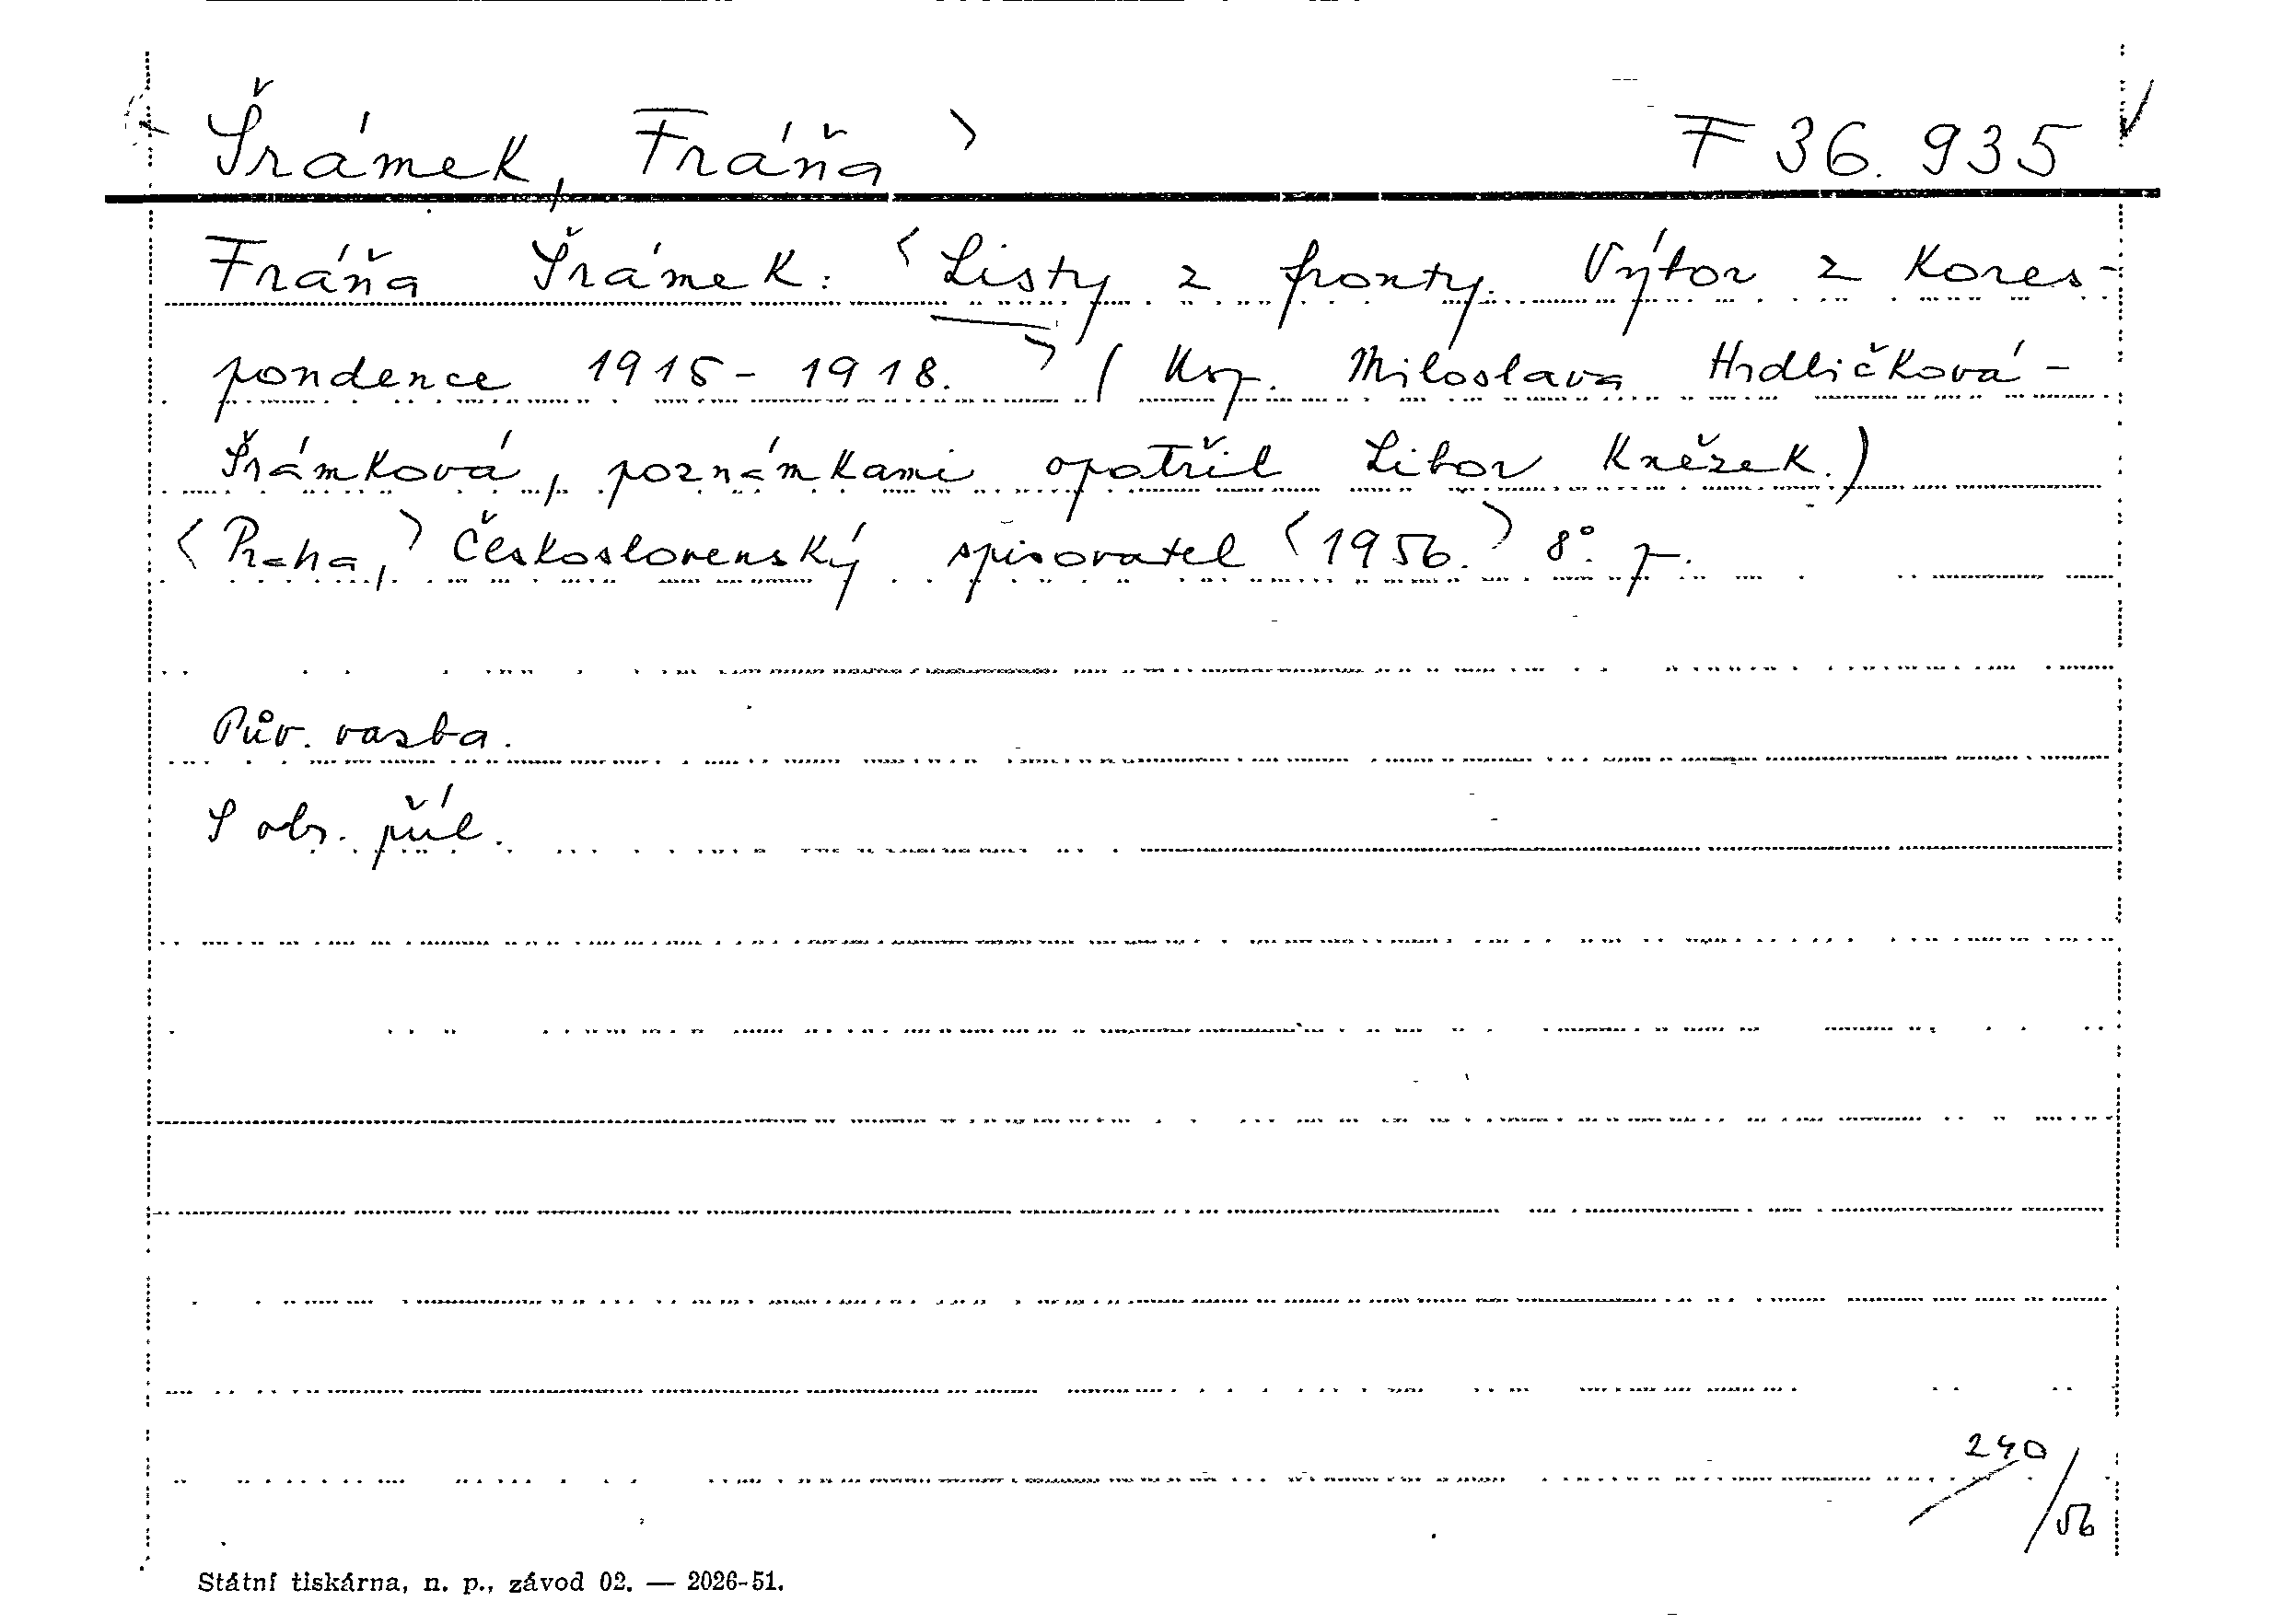 Šrámek, Fráňa > F 36.935
Fráňa Šrámek: <Listy z fronty. Výbor z kores-
pondence 1915-1918.> (Usp. Miloslava Hrdličková-
Šrámková, poznámkami opatřil Libor Knězek.)
<Praha,> Československý spisovatel <1956.> 8°. p.
Pův. vazba.
S obr. příl.
240/56
Státní tiskárna, n. p., závod 02. — 2026-51.